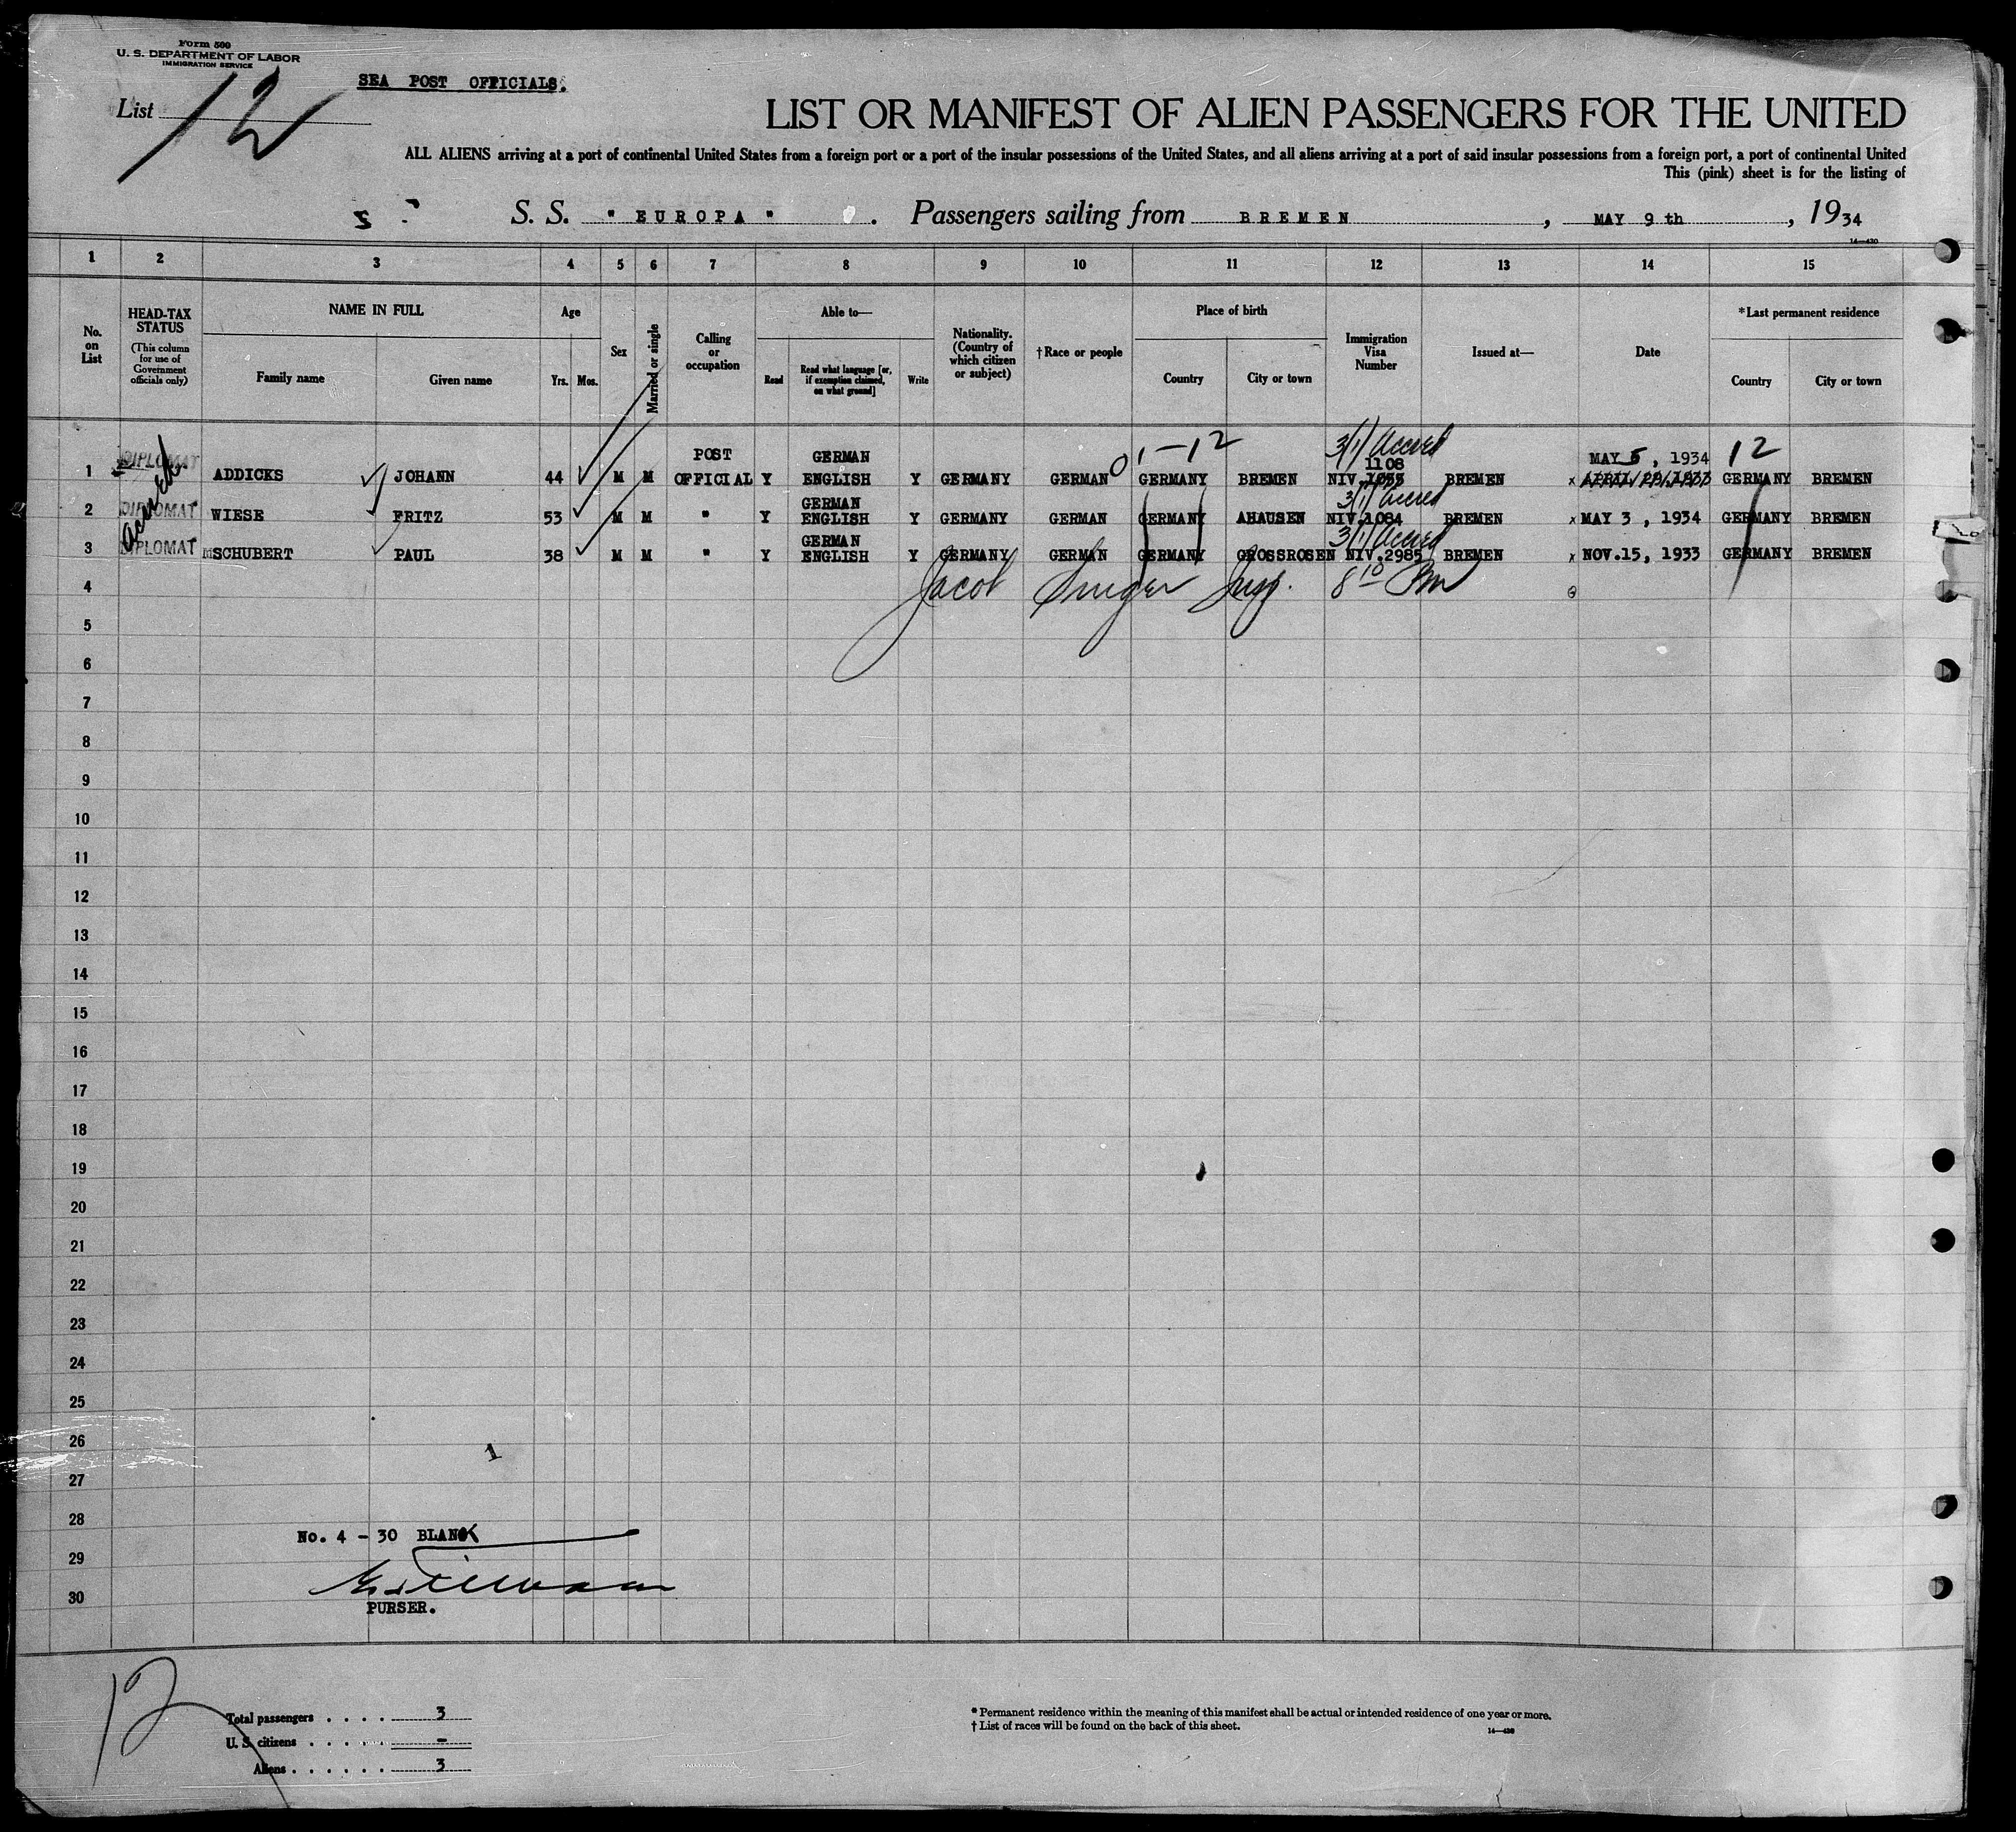 Form 500
U. S. DEPARTMENT OF LABOR
IMMIGRATION SERVICE
SEA POST OFFICIALS.
List 12
LIST OR MANIFEST OF ALIEN PASSENGERS FOR THE UNITED
ALL ALIENS arriving at a port of continental United States from a foreign port or a port of the insular possessions of the United States, and all aliens arriving at a port of said insular possessions from a foreign port, a port of continental United
This (pink) sheet is for the listing of
S. S. " EUROPA " . Passengers sailing from BREMEN , MAY 9 th , 1934
14—430
1 2 3 4 5 6 7 8 9 10 11 12 13 14 15
No. on List
HEAD-TAX STATUS
(This column for use of Government officials only)
NAME IN FULL
Family name
Given name
Age
Yrs. Mos.
Sex
Married or single
Calling or occupation
Able to—
Read
Read what language [or, if exemption claimed, on what ground]
Write
Nationality. (Country of which citizen or subject)
†Race or people
Place of birth
Country
City or town
Immigration Visa Number
Issued at—
Date
*Last permanent residence
Country
City or town
1-12
12
3/1/ Accred
DIPLOMAT
POST
GERMAN
1108
MAY 5, 1934
1 ADDICKS JOHANN 44 M M OFFICIAL Y ENGLISH Y GERMANY GERMAN GERMANY BREMEN NIV. BREMEN x GERMANY BREMEN
GERMAN
3/1/ Accred
2 DIPLOMAT WIESE FRITZ 53 M M " Y ENGLISH Y GERMANY GERMAN GERMANY AHAUSEN NIV.1084 BREMEN x MAY 3, 1934 GERMANY BREMEN
GERMAN
3/1/ Accred
3 DIPLOMAT SCHUBERT PAUL 38 M M " Y ENGLISH Y GERMANY GERMAN GERMANY GROSSROSEN NIV.2985 BREMEN x NOV.15, 1933 GERMANY BREMEN
4 Jacob Singer Insp. 8 10 PM
5
6
7
8
9
10
11
12
13
14
15
16
17
18
19
20
21
22
23
24
25
26
27
28
No. 4 - 30 BLANK
29
30
PURSER.
12
Total passengers . . . . 3
U. S. citizens . . . . . -
Aliens . . . . . . 3
* Permanent residence within the meaning of this manifest shall be actual or intended residence of one year or more.
† List of races will be found on the back of this sheet.
14—430